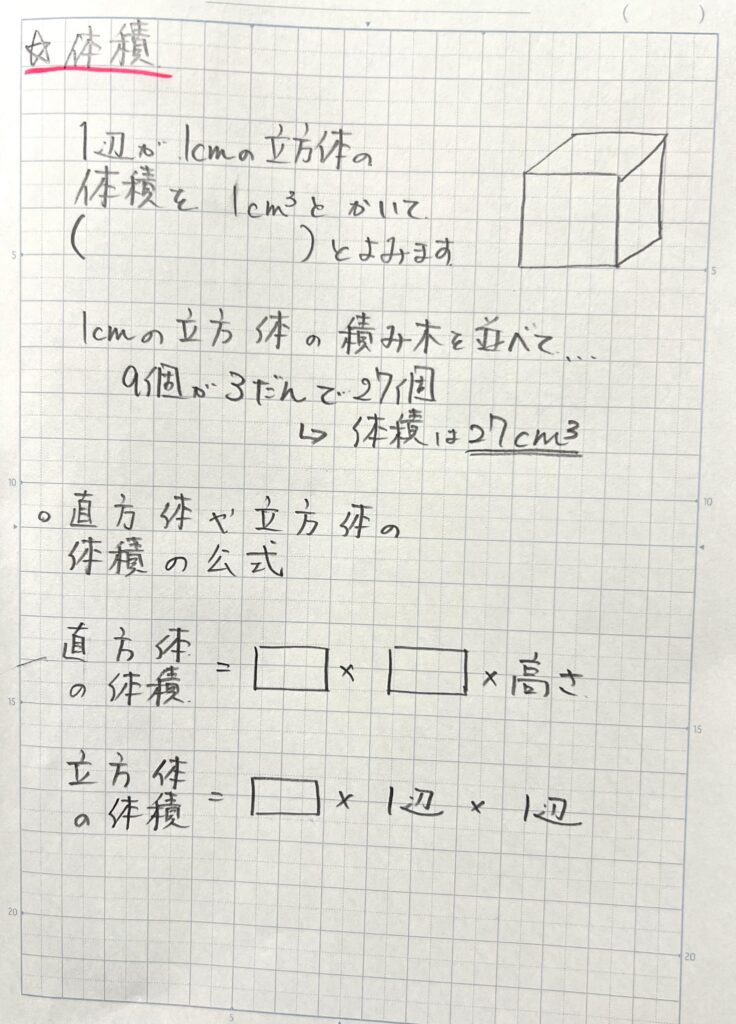 (　　)
☆ 体積
1辺が1cmの立方体の
体積を 1cm³とかいて
(　　　　　)とよみます
1cmの立方体の積み木を並べて...
9個が3だんで27個
↳ 体積は27cm³
○ 直方体や立方体の
体積の公式
直方体
の体積 = □ × □ × 高さ
立方体
の体積 = □ × 1辺 × 1辺
5
5
10
10
15
15
20
20
5